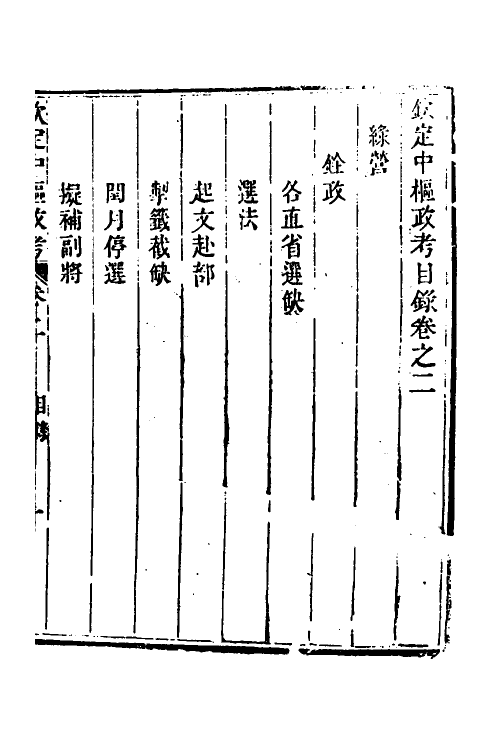 欽定中樞政考目錄卷之二
綠營
銓政
各直省選缺
選法
起文赴部
掣籤截缺
閏月停選
擬補副將
欽定中樞政考
目錄